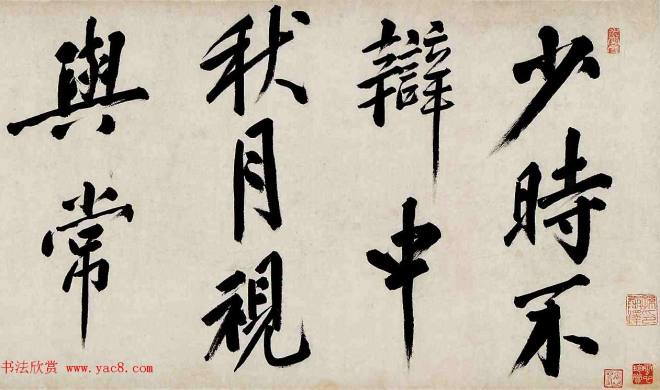 少時不
辯中
秋月視
與常
书法欣赏 www.yac8.com